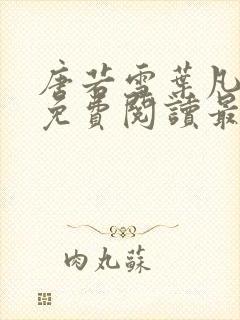 唐若雪葉凡
免費閱讀最
肉丸蘇